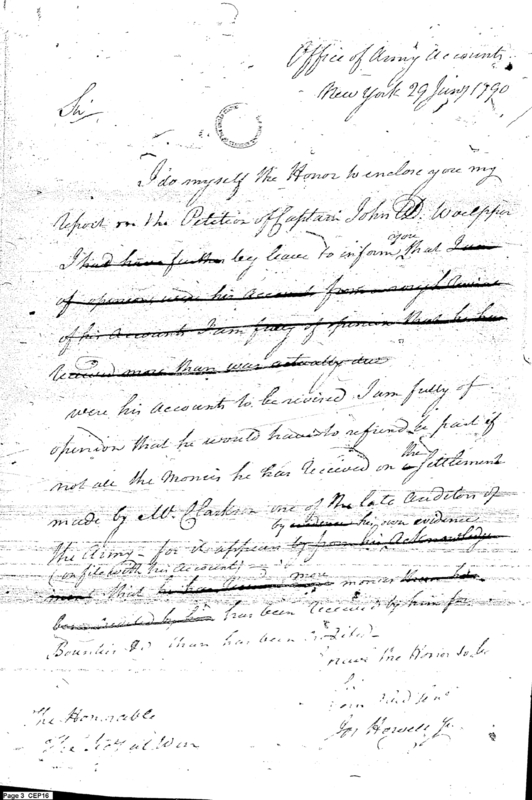 Office of Army Accounts
New York 29 June 1790
Sir
I do myself the Honor to enclose you my
report on the Petition of Captain John D. Woelpper
I had have further beg leave to inform you that I am
of opinion were his accounts from a rough
of his accounts I am fully of opinion that he has
received more than was actually due
were his accounts to be revised I am fully of
opinion that he would have to refund a part if
not all the monies he has received on the Settlement
made by Mr. Clarkson one of the late Auditors of
by his own evidence
the Army - for it appears by from his Acknowledge
(on file with his account)
ment that he has more monies than he
has been received by him for
Bounties &c than has been
the Honor to be
Sir
Jos Howell Jr.
The Honorable
The Sec of War
Page 3 CEP16